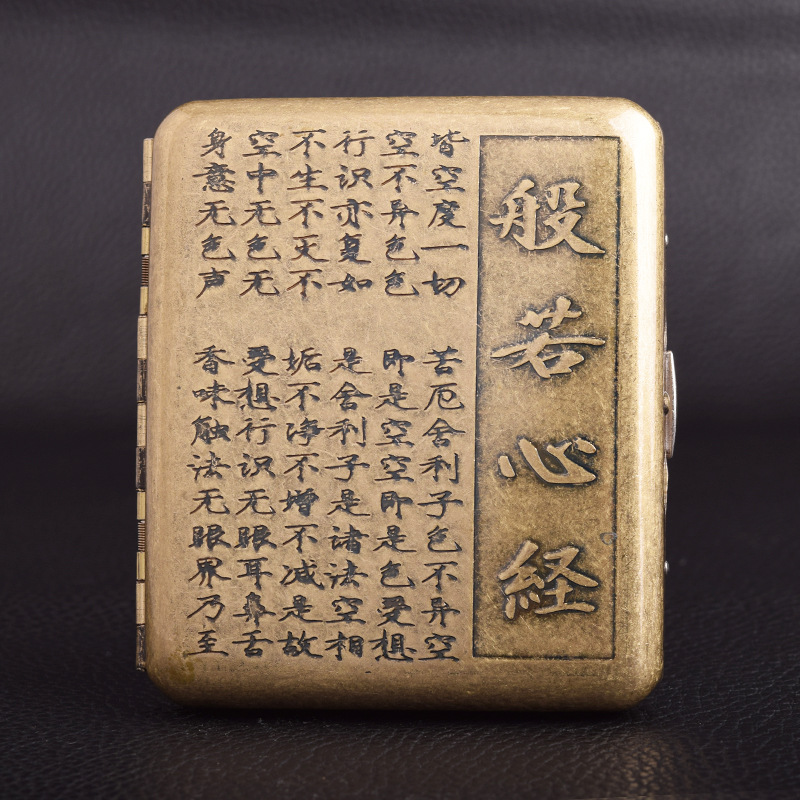 般若心経
皆空度一切 苦厄舍利子色不异空
空不异色色 即是空空即是色受想
行识亦复如 是舍利子是诸法空相
不生不灭不 垢不净不增不减是故
空中无色无 受想行识无眼耳鼻舌
身意无色声 香味触法无眼界乃至